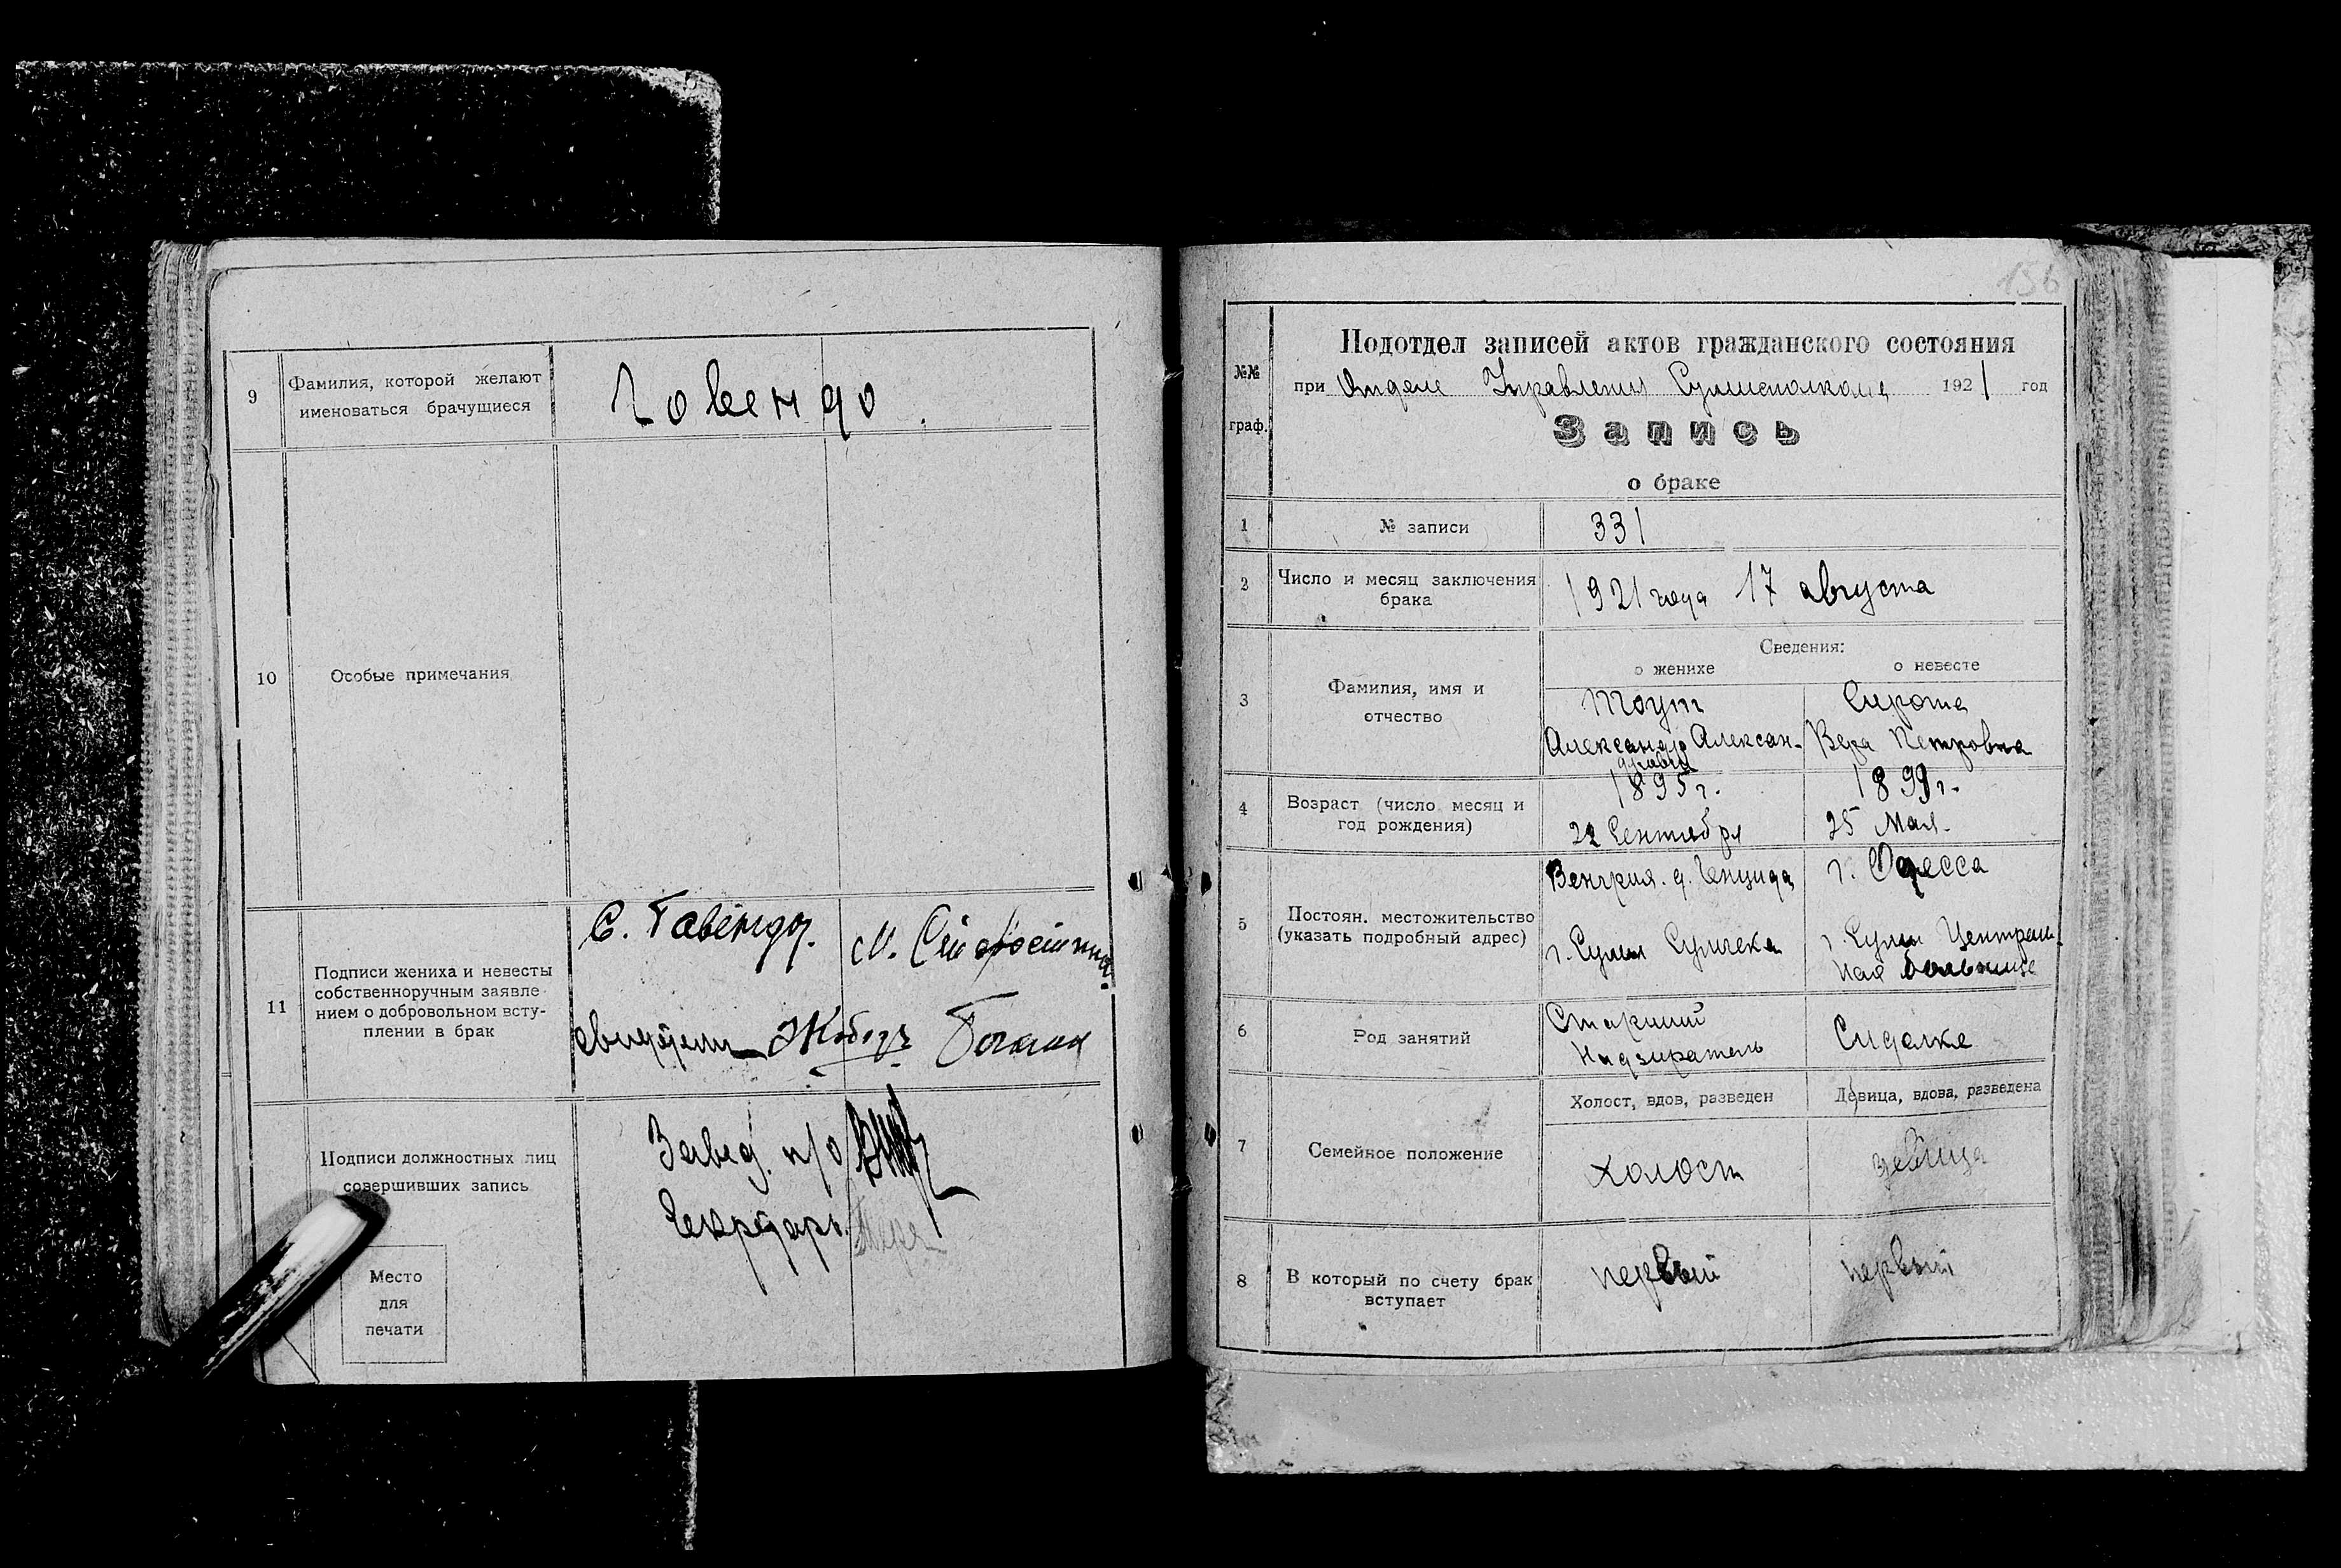 9
Фамилия, которой желают
именоваться брачущиеся
Говендо.
10
Особые примечания
11
Подписи жениха и невесты
собственноручным заявле-
нием о добровольном всту-
плении в брак
С. Говендо.
М.
Подписи должностных лиц
совершивших запись
Завед. п/о
Секретарь
Место
для
печати
156
№№
граф.
Подотдел записей актов гражданского состояния
при Отделе Управления 1921 год
Запись
о браке
1
№ записи
331
2
Число и месяц заключения
брака
1921 года 17 августа
Сведения:
о женихе
о невесте
3
Фамилия, имя и
отчество
Тоут
Александр Алексан-
дрович
Сирота
Вера Петровна
4
Возраст (число месяц и
год рождения)
1895 г.
22 Сентября
1899 г.
25 Мая.
5
Постоян. местожительство
(указать подробный адрес)
Венгрия. д.
г. Сумы
г. Одесса
г. Сумы Централь-
ная больница
6
Род занятий
Старший
Надзиратель
Сиделка
7
Семейное положение
Холост, вдов, разведен
Девица, вдова, разведена
холост
девица
8
В который по счету брак
вступает
первый
первый